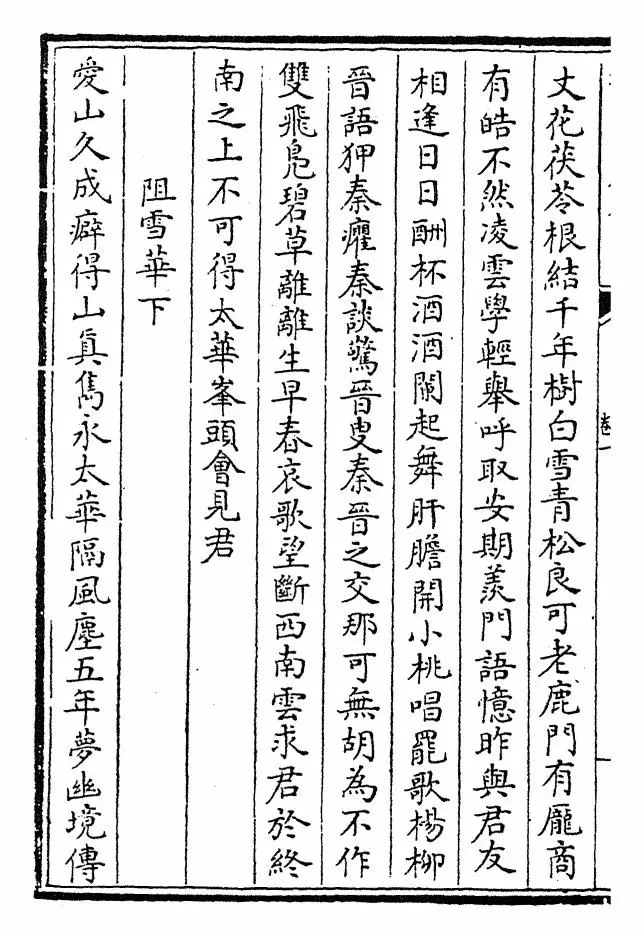 丈花茯苓根結千年樹白雪青松良可老鹿門有龐商
有皓不然凌雲學輕舉呼取安期羨門語憶昨與君友
相逢日日酬杯酒酒闌起舞肝膽開小桃唱罷歌楊柳
晉語狎秦癯秦談驚晉叟秦晉之交那可無胡為不作
雙飛鳧碧草離離生早春哀歌望斷西南雲求君於終
南之上不可得太華峯頭會見君
阻雪華下
愛山久成癖得山真雋永太華隔風塵五年夢幽境傳
卷一